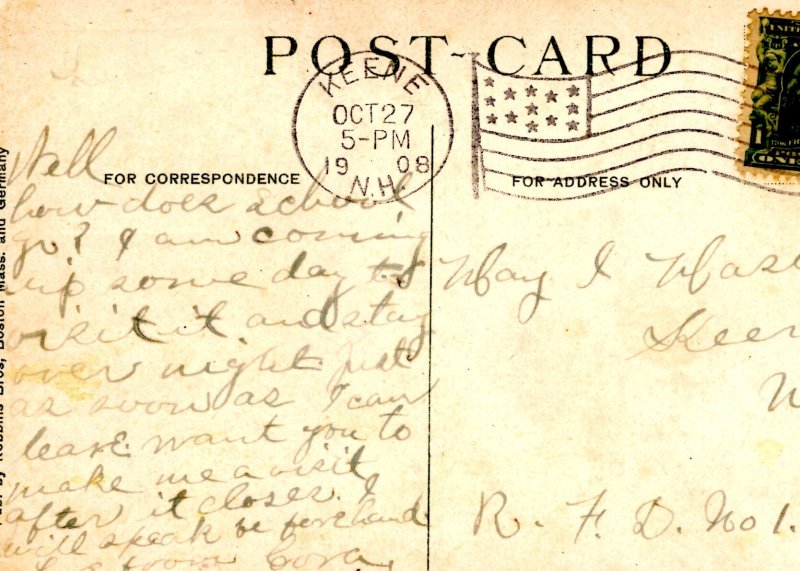 POST-CARD
KEENE
OCT 27
5-PM
1908
N.H.
FOR CORRESPONDENCE
FOR ADDRESS ONLY
Well
how does school
go? I am coming
up some day to
visit it and stay
over night just
as soon as I can
leave want you to
make me a visit
after it closes. I
will speak be forehand
from Cora
May I
Keen
R. F. D. No 1.
Publ. by Robbins Bros, Boston Mass. and Germany
ONE